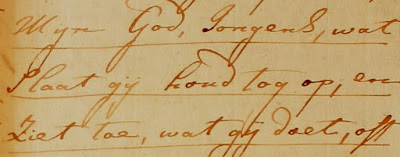 Myn God, Jongens, wat
slaat gij houd tog op, en
Ziet toe, wat gij doet, off